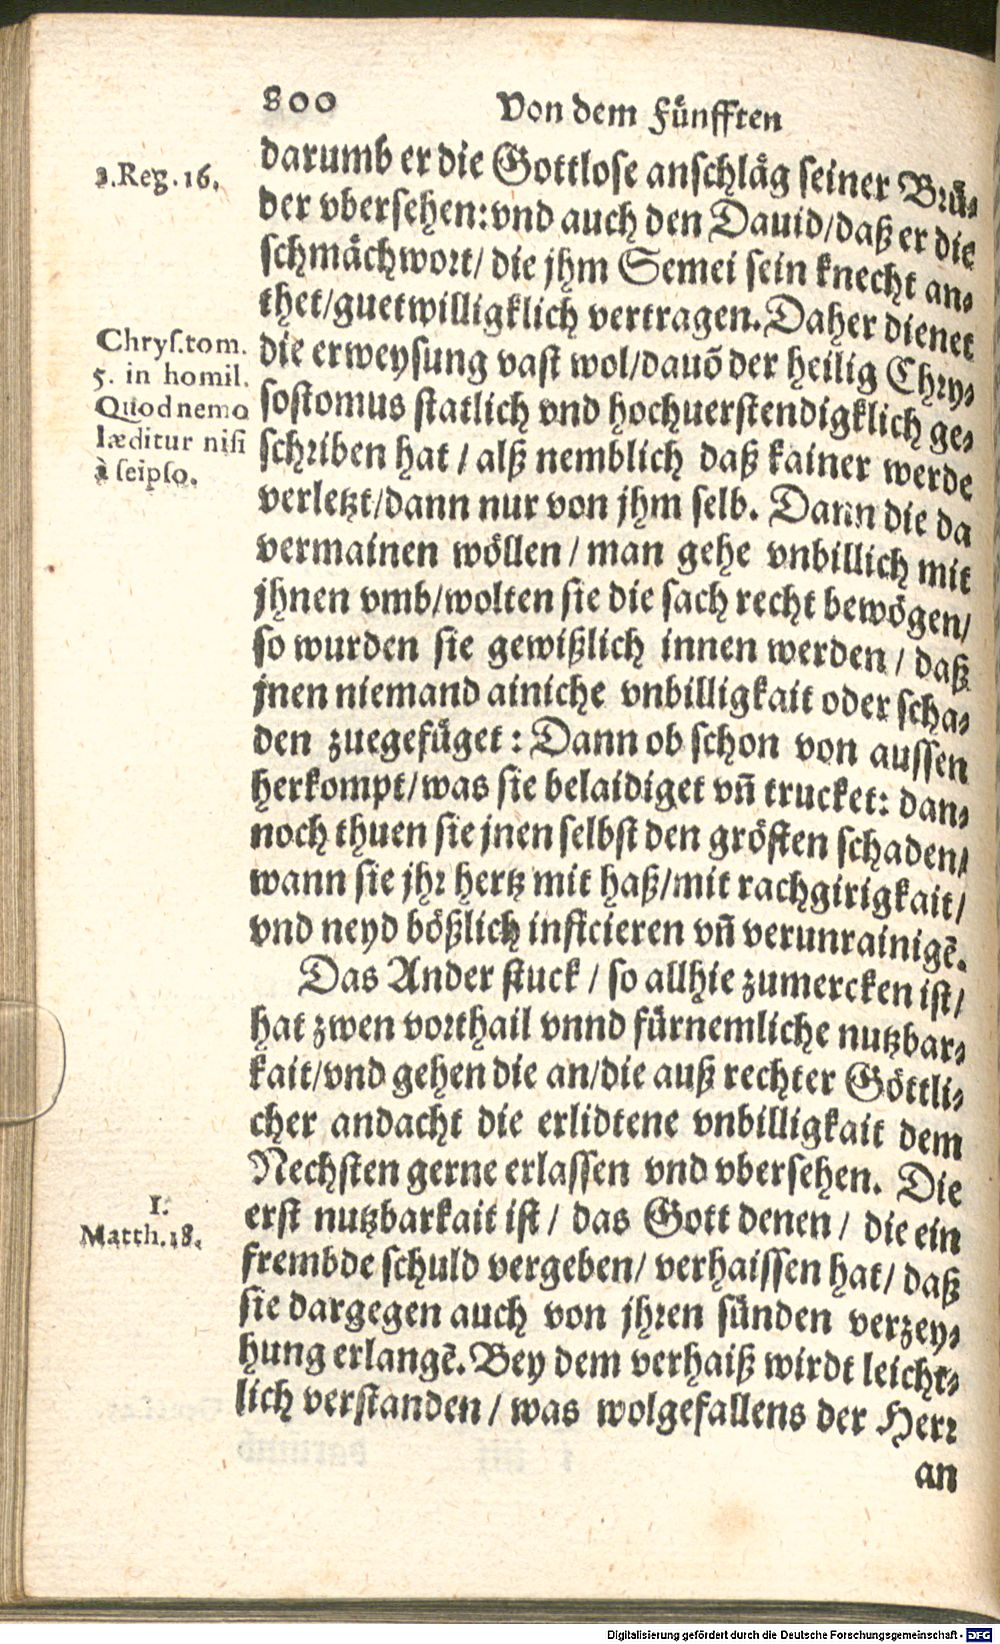 800
Von dem Fünfften
darumb er die Gottlose anschläg seiner Brü-
2.Reg.16.
der vbersehen: vnd auch den Dauid/daß er die
schmächwort/ die jhm Semei sein knecht an-
thet/guetwilligklich vertragen. Daher dienet
Chrys.tom.
5. in homil.
Quod nemo
læditur nisi
à seipso.
die erweysung vast wol/dauõ der heilig Chry-
sostomus statlich vnd hochuerstendigklich ge-
schriben hat / alß nemblich daß kainer werde
verletzt/dann nur von jhm selb. Dann die da
vermainen wöllen / man gehe vnbillich mit
jhnen vmb/wolten sie die sach recht bewögen/
so wurden sie gewißlich innen werden / daß
jnen niemand ainiche vnbilligkait oder scha-
den zuegefüget : Dann ob schon von aussen
herkompt/was sie belaidiget vñ trucket: dan-
noch thuen sie jnen selbst den grösten schaden/
wann sie jhr hertz mit haß/mit rachgirigkait/
vnd neyd bößlich inficieren vñ verunrainigẽ.
Das Ander stuck / so allhie zumercken ist/
hat zwen vorthail vnnd fürnemliche nutzbar-
kait/vnd gehen die an/die auß rechter Göttli-
cher andacht die erlidtene vnbilligkait dem
Nechsten gerne erlassen vnd vbersehen. Die
1.
Matth.18.
erst nutzbarkait ist / das Gott denen / die ein
frembde schuld vergeben/ verhaissen hat/ daß
sie dargegen auch von jhren sünden verzey-
hung erlangẽ. Bey dem verhaiß wirdt leicht-
lich verstanden / was wolgefallens der Herr
an
Digitalisierung gefördert durch die Deutsche Forschungsgemeinschaft - DFG